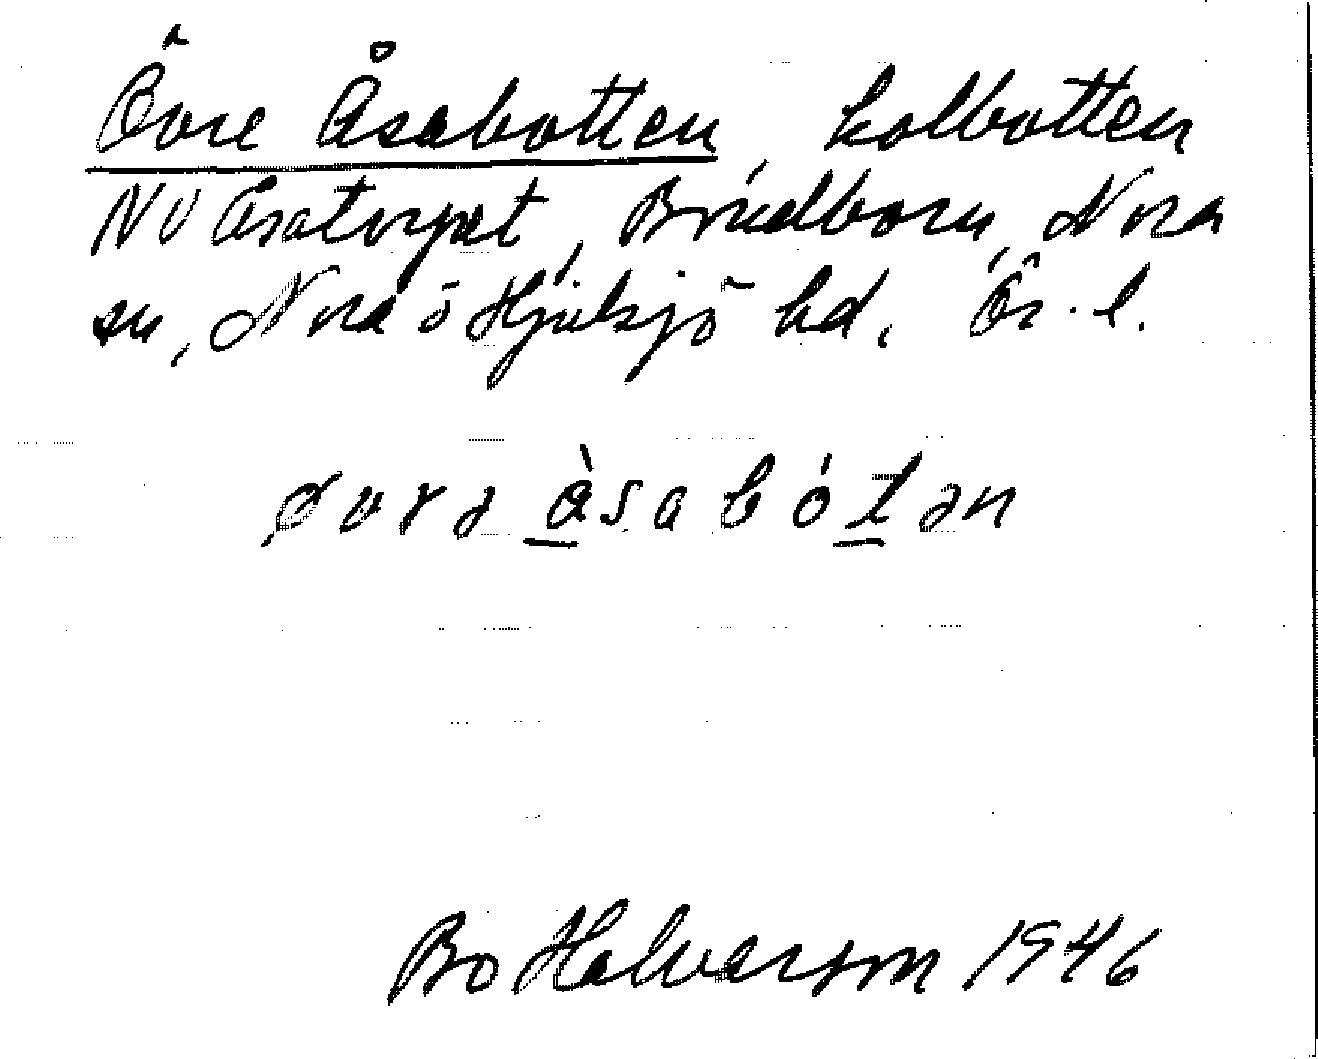 Övre Åsabotten, kolbotten
NV Åsatorpet, Bredborn, Nora
sn, Nora o Hjulsjö hd, Ör. l.
øvrə åsabótən
Bo Halvarson 1946